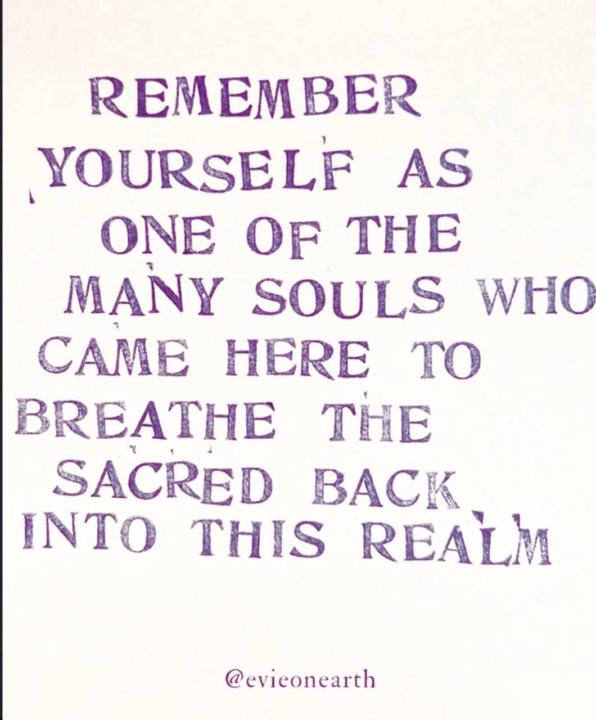 REMEMBER
YOURSELF AS
ONE OF THE
MANY SOULS WHO
CAME HERE TO
BREATHE THE
SACRED BACK
INTO THIS REALM
@evieonearth